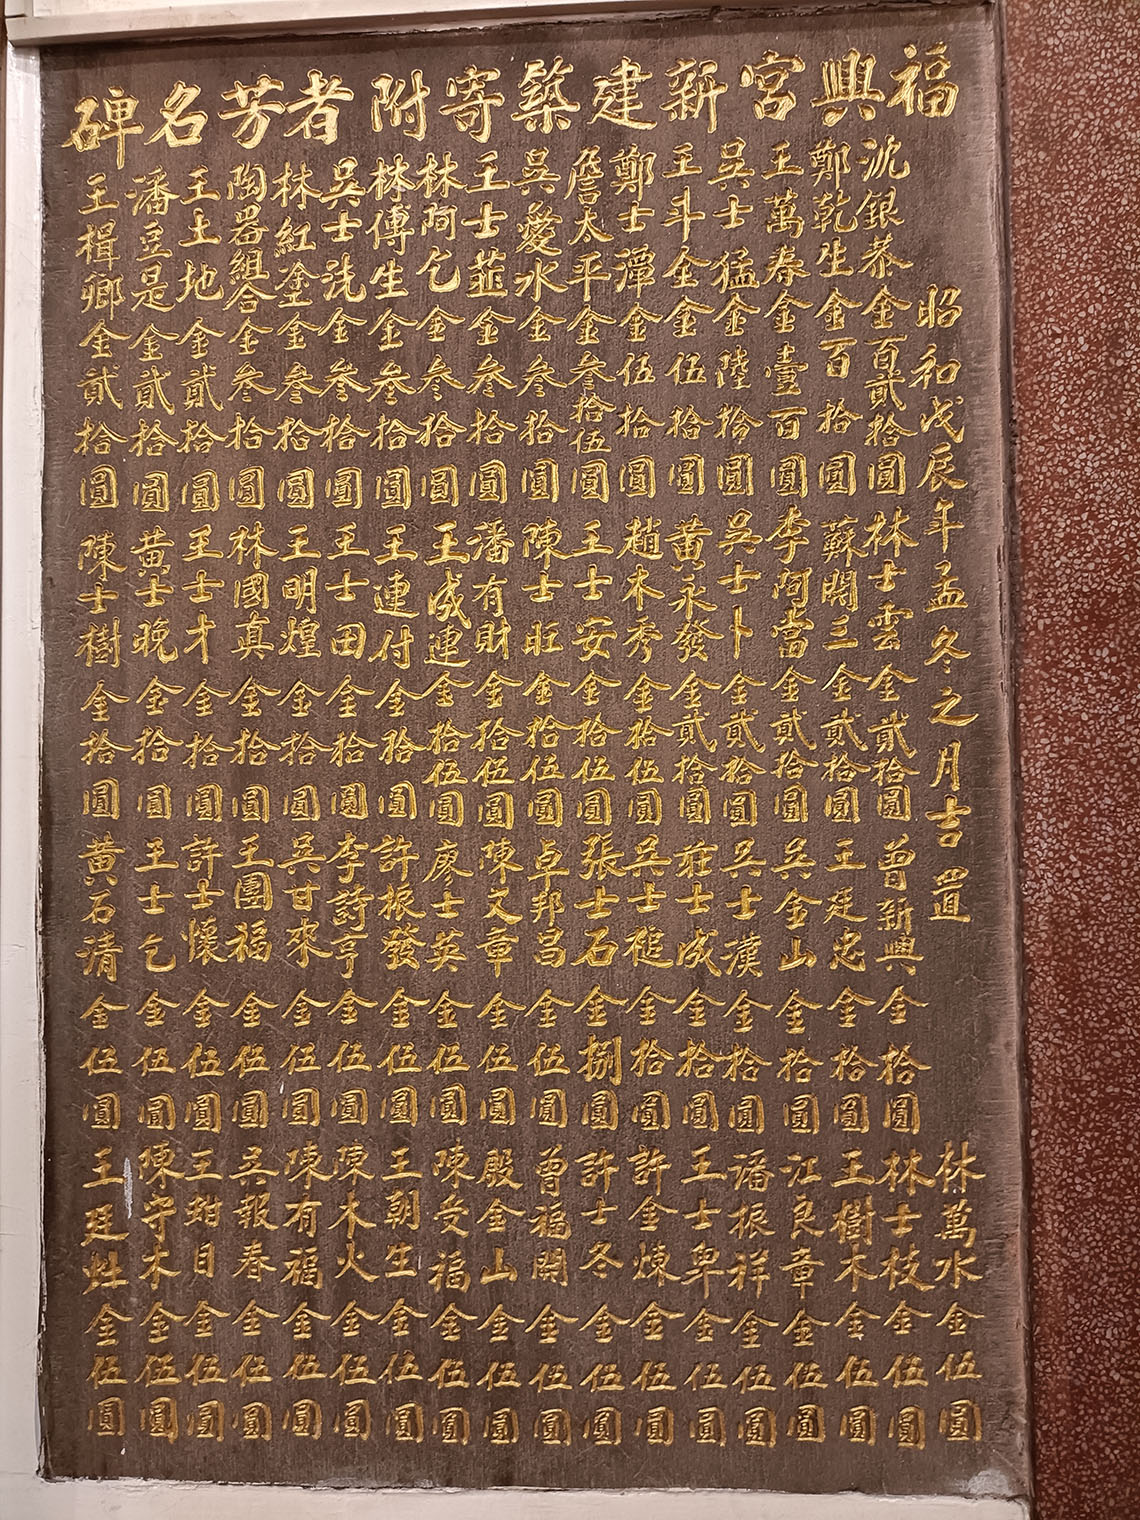 福興宮新建築寄附者芳名碑
昭和戊辰年孟冬之月吉置
沈銀恭金百貳拾圓
鄭乾生金百拾圓
王萬春金壹百圓
吳士猛金陸拾圓
王斗金金伍拾圓
鄭士潭金伍拾圓
詹太平金叁拾伍圓
吳愛水金叁拾圓
王士韮金叁拾圓
林阿乞金叁拾圓
林傳生金叁拾圓
吳士洗金叁拾圓
林紅塗金叁拾圓
陶器組合金叁拾圓
王土地金貳拾圓
潘豆是金貳拾圓
王楫卿金貳拾圓
林士雲金貳拾圓
蘇開三金貳拾圓
李阿當金貳拾圓
吳士卜金貳拾圓
黃永發金貳拾圓
趙木秀金拾伍圓
王士安金拾伍圓
陳士旺金拾伍圓
潘有財金拾伍圓
王成連金拾伍圓
王連付金拾圓
王士田金拾圓
王明煌金拾圓
林國真金拾圓
王士才金拾圓
黃士晚金拾圓
陳士樹金拾圓
曾新興金拾圓
王廷忠金拾圓
吳金山金拾圓
吳士漢金拾圓
莊士成金拾圓
吳士槌金拾圓
張士石金捌圓
卓邦昌金伍圓
陳文章金伍圓
廖士英金伍圓
許振發金伍圓
李詩亨金伍圓
吳甘來金伍圓
王團福金伍圓
許士懷金伍圓
王士乞金伍圓
黃石清金伍圓
林萬水金伍圓
林士枝金伍圓
王樹木金伍圓
江良章金伍圓
潘振祥金伍圓
王士卑金伍圓
許金煉金伍圓
許士冬金伍圓
曾福開金伍圓
殷金山金伍圓
陳受福金伍圓
王朝生金伍圓
陳木火金伍圓
陳有福金伍圓
吳報春金伍圓
王目金伍圓
陳守木金伍圓
王廷金伍圓